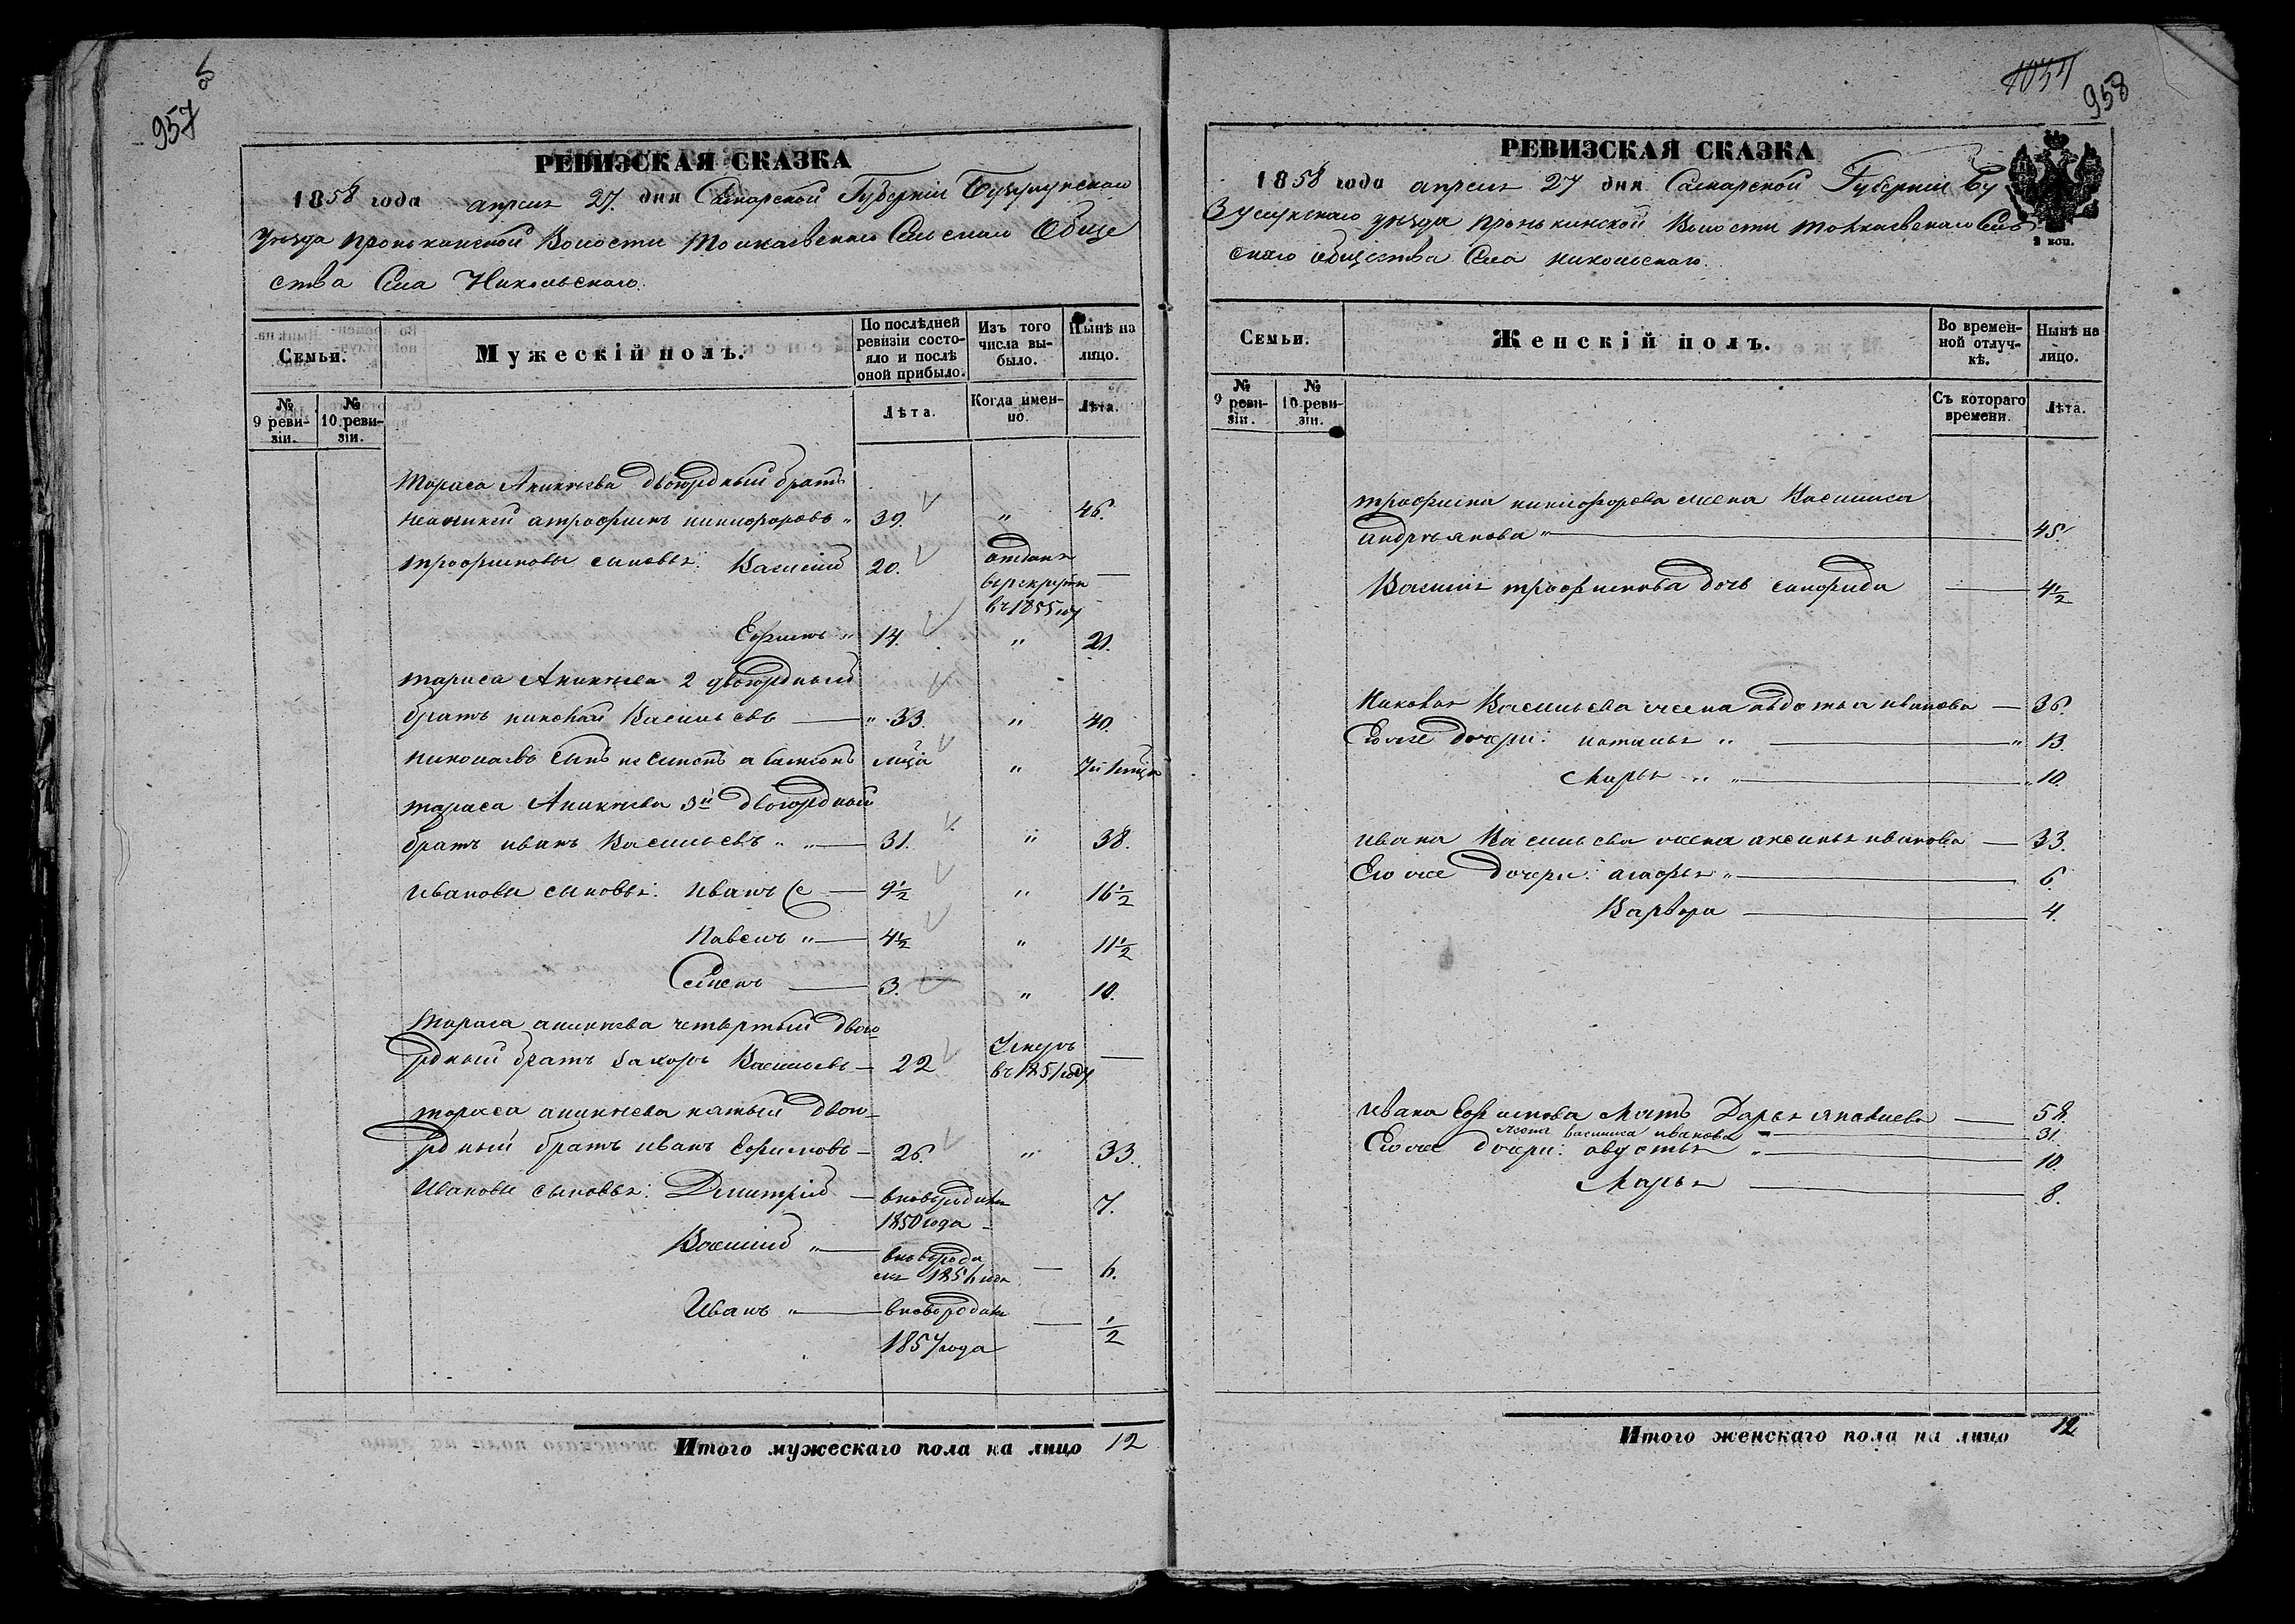 957
об
РЕВИЗСКАЯ СКАЗКА
1858 года апреля 27. дня Самарской Губернiи Бузулукскаго
уѣзда Пронькинской Волости Токкаевскаго Сельскаго Обще
ства Села Никольскаго.
Семьи.
Мужескiй полъ.
По послѣдней ревизiи состояло и послѣ оной прибыло.
Изъ того числа выбыло.
Нынѣ на лицо.
№ 9 ревизiи.
№ 10 ревизiи.
Лѣта.
Когда именно.
Лѣта.
Тараса Аникѣева двоюрдный братъ
неаникей атрофимъ никифоровъ „ 39. „ 46.
трофимовы сыновья: Василий 20. отданъ
врекруты —
въ 1855 году
Ефимъ „ 14. „ 21.
тараса Аникѣева 2 двоюрдный
братъ николай Васильевъ — „ 33. „ 40.
николаевъ сынъ несимонъ а самсонъ мцa „ 7 и 1 мцъ
тараса Аникѣева 3й двоюрдной
братъ иванъ Васильевъ „ „ — 31. „ 38.
ивановы сыновья: иванъ — 9 1/2 „ 16 1/2
Павелъ „ — 4 1/2 „ 11 1/2
Семенъ — 3. „ 10.
Тараса аникѣева четвертый двою
рдный братъ захаръ Васильевъ — 22 Умеръ
въ 1851 году —
тараса аникѣева пятый двою-
рдный братъ иванъ Ефимовъ — 26. „ 33.
Ивановы сыновья: Дмитрий — вновьродился
1850 года 7.
Василий „ — вновьроди
лся 1851 года — 6.
Иванъ „ — вновьродился
1857 года — 1/2
Итого мужескаго пола на лицо 12
1034
958
РЕВИЗСКАЯ СКАЗКА
1858 года апреля 27 дня Самарской Губернiи Бу
зулукскаго уѣзда пронькинской Волости токкаевскаго Сель
скаго общества Села никольскаго.
2 коп.
Семьи.
Женскiй полъ.
Во временной отлучкѣ.
Нынѣ на лицо.
№ 9 ревизiи.
№ 10 ревизiи.
Съ котораго времени.
Лѣта.
трофима никифорова жена Василиса
андреянова „ — 45.
Василья трофимова дочь санфрида — 4 1/2
Николая Васильева жена авдотья иванова — 36.
Его же дочери: наталья „ — „ 13.
Марья „ „ — „ 10.
ивана Васильева жена аксинья иванова — 33.
Его же дочери: агафья „ — 6.
Варвара — 4.
ивана Ефимова Мать Дарья яковлева — 58.
жена василиса иванова — 31.
Его же дочери: авдотья „ — 10.
Марья — 8.
Итого женскаго пола на лицо 12